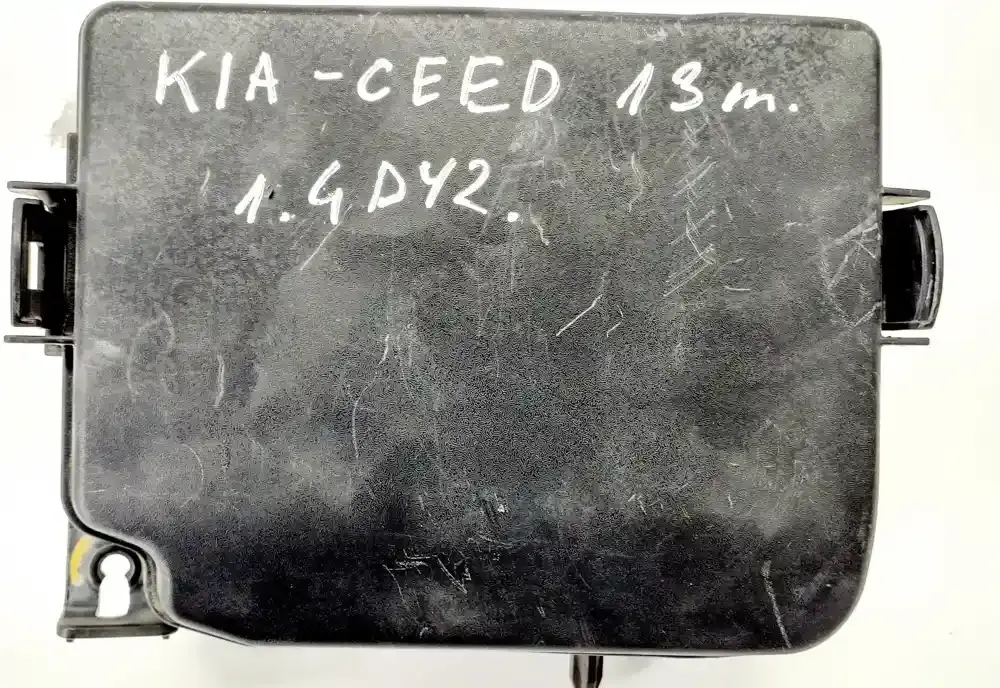 KIA - CEED 13 m.
1.4 DYZ.